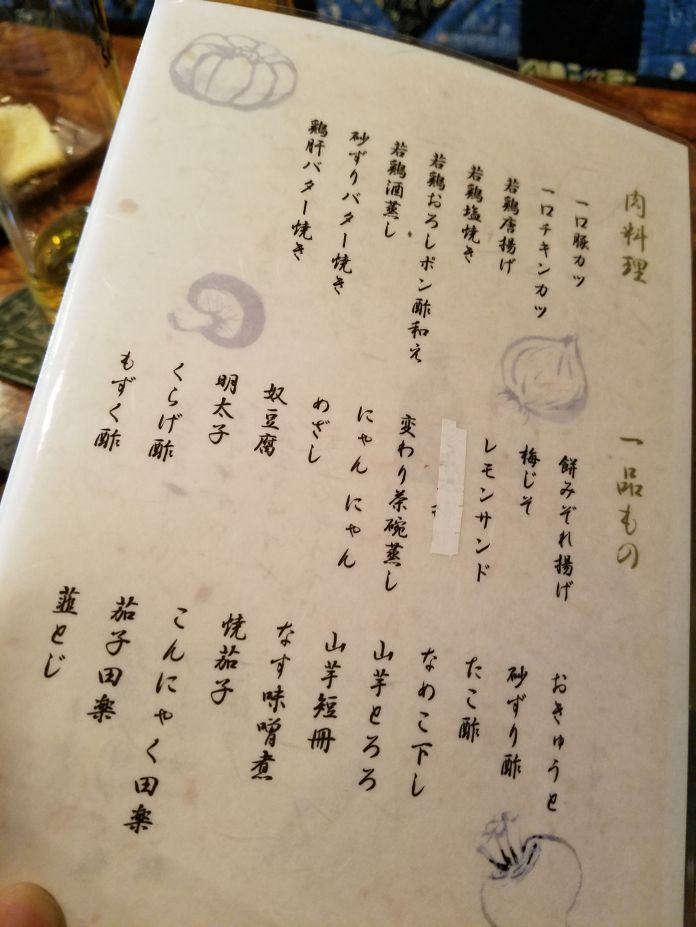 肉料理
一口豚カツ
一口チキンカツ
若鶏唐揚げ
若鶏塩焼き
若鶏おろしポン酢和え
若鶏酒蒸し
砂ずりバター焼き
鶏肝バター焼き
一品もの
餅みぞれ揚げ
梅じそ
レモンサンド
変わり茶碗蒸し
にゃんにゃん
めざし
奴豆腐
明太子
くらげ酢
もずく酢
おきゅうと
砂ずり酢
たこ酢
なめこ下し
山芋とろろ
山芋短冊
なす味噌煮
焼茄子
こんにゃく田楽
茄子田楽
韮とじ